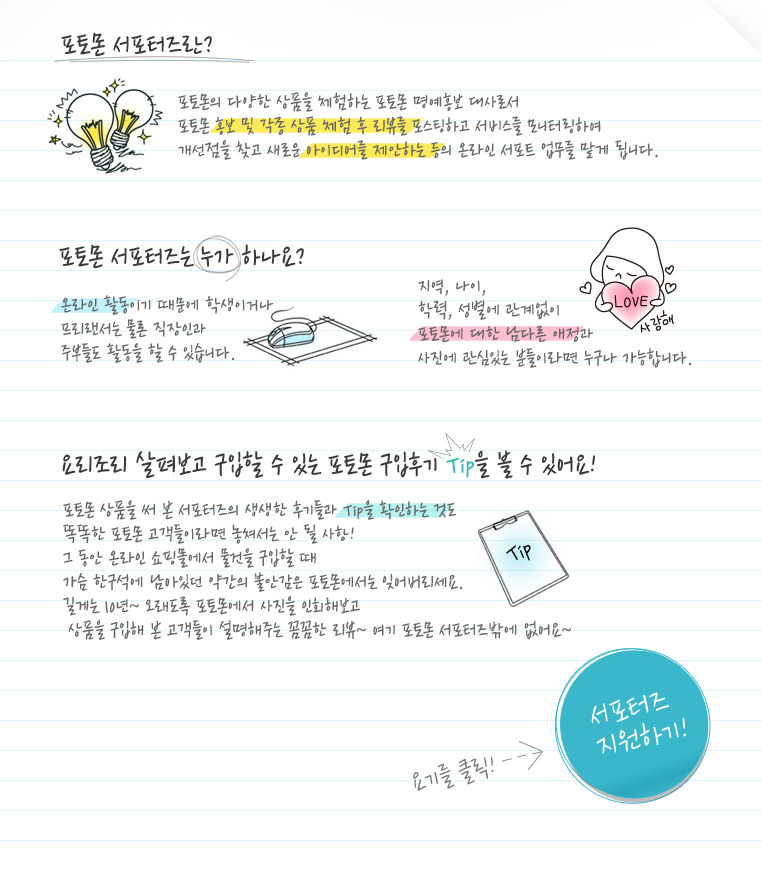 포토몬 서포터즈란?
포토몬의 다양한 상품을 체험하는 포토몬 명예홍보 대사로서
포토몬 홍보 및 각종 상품 체험 후 리뷰를 포스팅하고 서비스를 모니터링하여
개선점을 찾고 새로운 아이디어를 제안하는 등의 온라인 서포트 업무를 맡게 됩니다.
포토몬 서포터즈는 누가 하나요?
온라인 활동이기 때문에 학생이거나
프리랜서는 물론 직장인과
주부들도 활동을 할 수 있습니다.
지역, 나이,
학력, 성별에 관계없이
포토몬에 대한 남다른 애정과
사진에 관심있는 분들이라면 누구나 가능합니다.
LOVE
사랑해
요리조리 살펴보고 구입할 수 있는 포토몬 구입후기 Tip을 볼 수 있어요!
포토몬 상품을 써 본 서포터즈의 생생한 후기들과 Tip을 확인하는 것도
똑똑한 포토몬 고객들이라면 놓쳐서는 안 될 사항!
그 동안 온라인 쇼핑몰에서 물건을 구입할 때
가슴 한구석에 남아있던 약간의 불안감은 포토몬에서는 잊어버리세요.
길게는 10년~ 오래도록 포토몬에서 사진을 인화해보고
상품을 구입해 본 고객들이 설명해주는 꼼꼼한 리뷰~ 여기 포토몬 서포터즈밖에 없어요~
TIP
서포터즈
지원하기!
요기를 클릭!